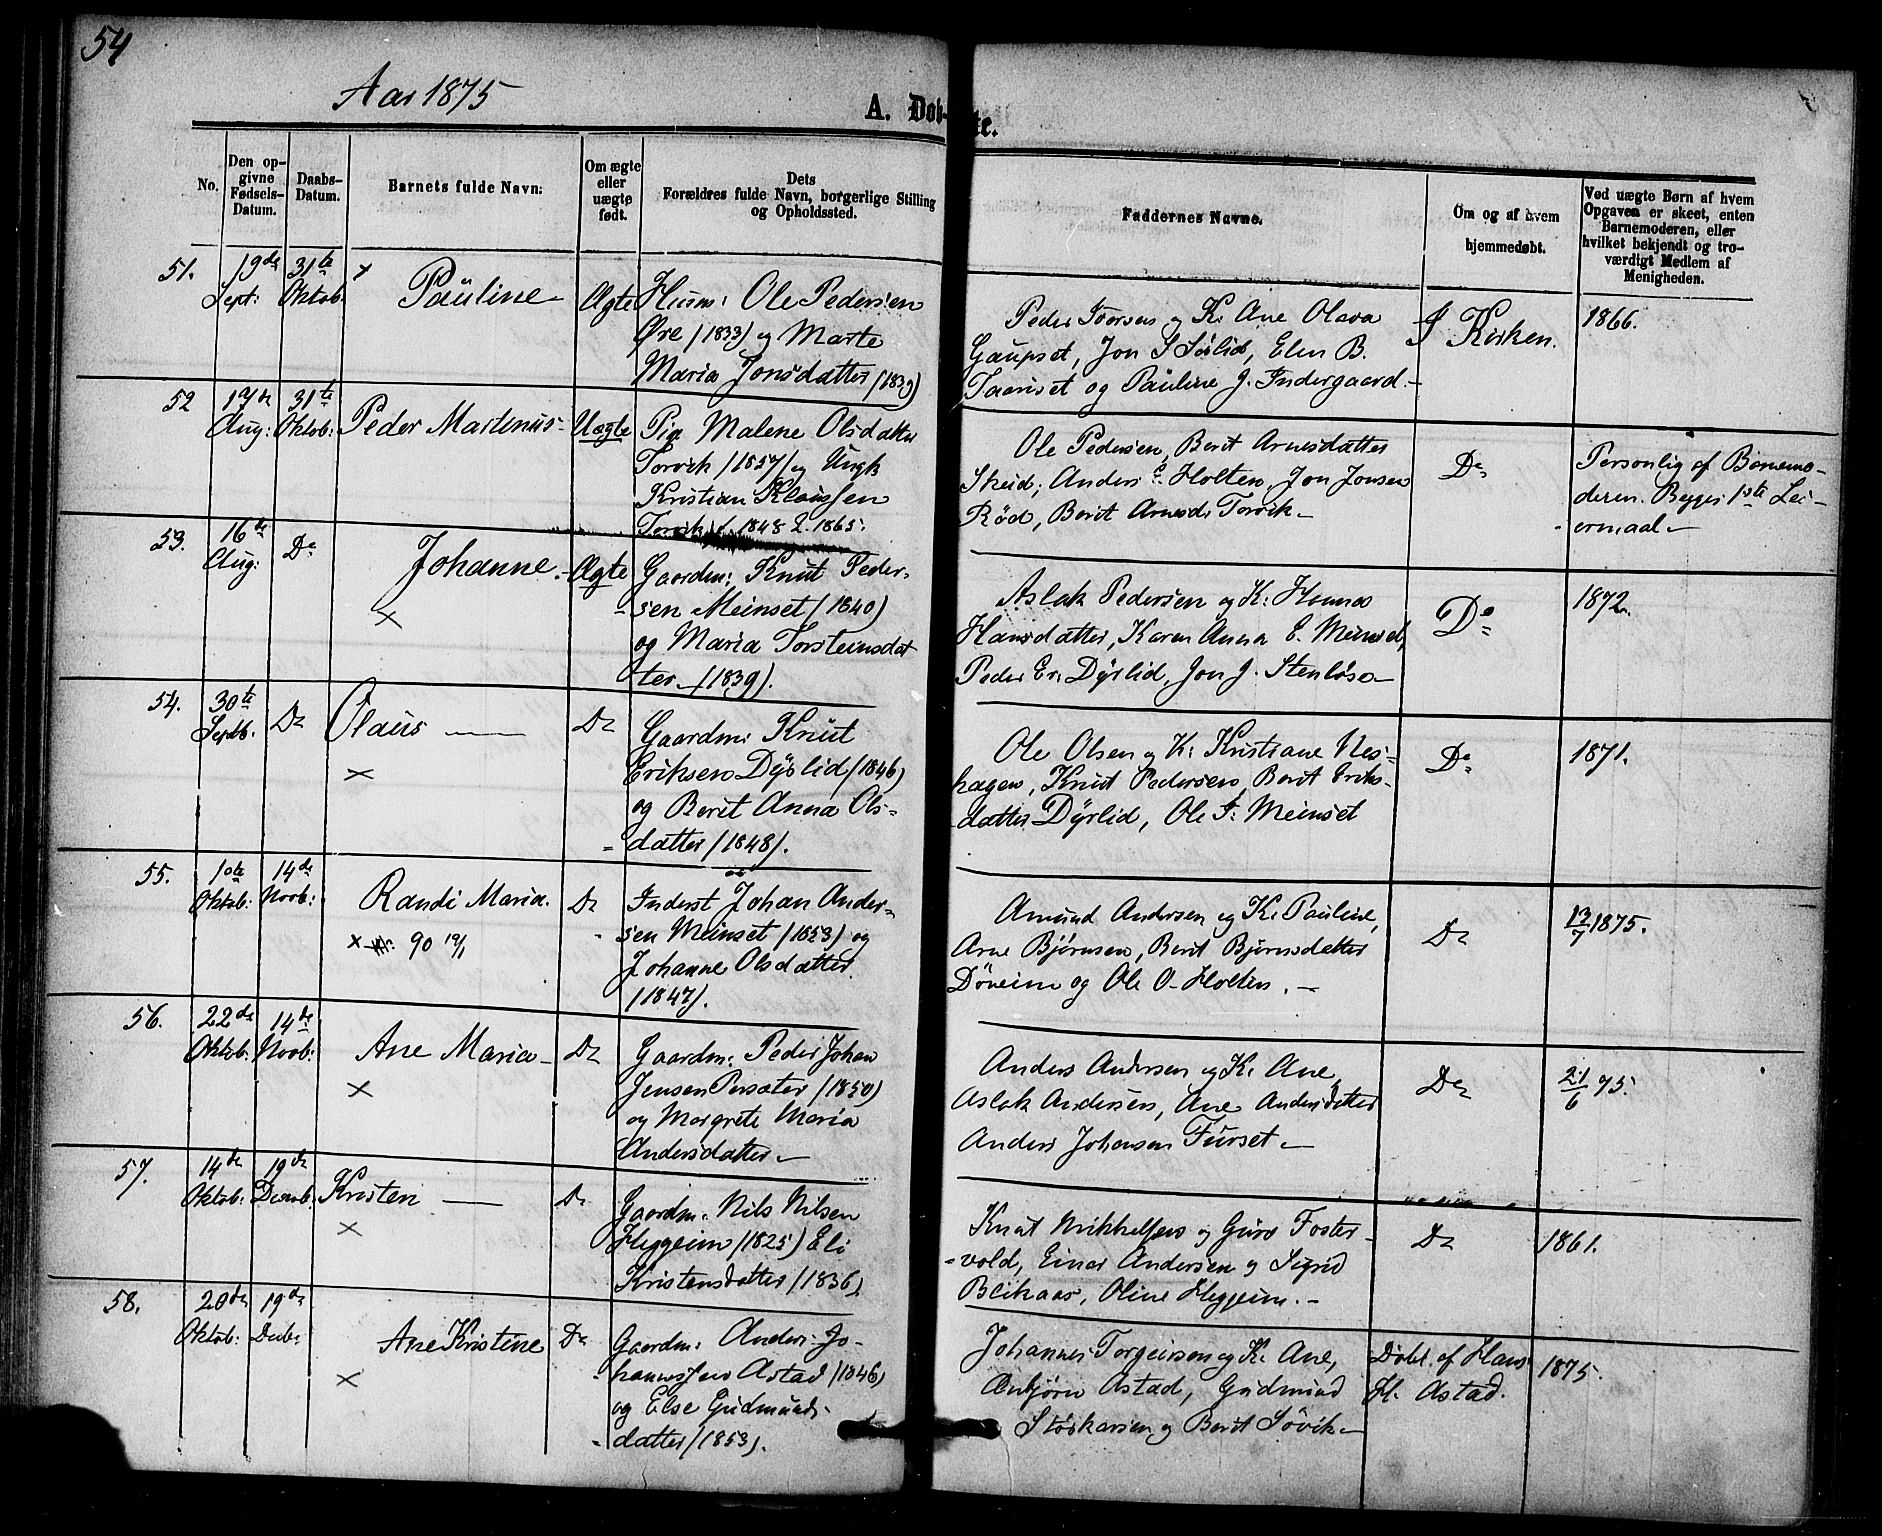 54
Aar 1875
A. Døb-
te.
No.
Den op-
givne
Fødsels-
Datum.
Daabs-
Datum.
Barnets fulde Navn.
Om ægte
eller
uægte
født.
Dets
Forældres fulde Navn, borgerlige Stilling
og Opholdssted.
Faddernes Navne.
Om og af hvem
hjemmedøbt.
Ved uægte Børn af hvem
Opgaven er skeet, enten
Barnemoderen, eller
hvilket bekjendt og tro-
værdigt Medlem af
Menigheden.
51.
19de
Sept:
31te
Oktob:
Pauline
Ægte
Husm: Ole Pedersen
Øre (1833) og Marte
Maria Jonsdatter (1839)
Peder Iversen og K: Ane Olava
Gaupset, Jon S Sølid, Elen B.
og Pauline J. Indergaard
I Kirken.
1866.
52
17de
Aug:
31te
Oktob:
Peder Martinus
Uægte
Pige Malene Olsdatter
Torvik (1857) og Ungk
Kristian Klaussen
Torvik f. 1848 1865.
Ole Pedersen, Berit Arnesdatter
Skeid, Anders E. Holten, Jon Jonsen
Rød, Berit Arnesd. Torvik
Do
Personlig af Barnemo-
deren. Begges 1ste Lei-
ermaal
53.
16te
Aug:
Do
Johanne
x
Ægte
Gaardm: Knut Peder-
sen Meinset (1840)
og Maria Torsteinsdat
ter (1839).
Aslak Pedersen og K: Hanna
Hansdatter, Karen Anna E. Meinset,
Peder Er. Dyrlid, Jon J. Stenløse
Do
1872.
54.
30te
Septb.
Do
Olaus
x
Do
Gaardm: Knut
Eriksen Dyrlid (1846)
og Berit Anna Ols-
datter (1848).
Ole Olsen og K: Kristiane Nes-
hagen, Knut Pedersen, Berit Eriks-
datter Dyrlid, Ole I: Meinset
Do
1871.
55.
1ste
Oktob:
14de
Novb:
Randi Maria.
x 90 19/1
Do
Inderst Johan Ander-
sen Meinset (1853) og
Johanne Olsdatter
(1847).
Amund Andersen og K: Pauline,
Arne Bjørnsen, Berit Bjørnsdatter
og Ole O. Holten.
Do
13/7 1875.
56.
22de
Oktob:
14de
Novb:
Ane Maria
x
Do
Gaardm: Peder Johan
Jensen Persæter (1850)
og Margrete Maria
Andersdatter
Anders Andersen og K: Ane,
Aslak Andersen, Ane Andersdatter
Anders Johansen Furset
Do
21/6 75.
57.
14de
Oktob:
19de
Decmb:
Kristen
x
Do
Gaardm: Nils Nilsen
Heggeim (1825) Eli
Kristensdatter (1836)
Knut Mikkelsen og Guro Foster-
vold, Einar Andersen og Sigrid
Blikaas, Oline Heggeim.
Do
1861.
58.
20de
Oktob:
19de
Decbr
Ane Kristine
x
Do
Gaardm: Anders Jo-
hannessen Astad (1846)
og Else Gudmunds-
datter (1853).
Johannes Torgeirsen og K: Ane,
Anbjørn Astad, Gudmund
Størkarsen og Berit Søvik
Døbt af Hans
H. Astad.
1875.